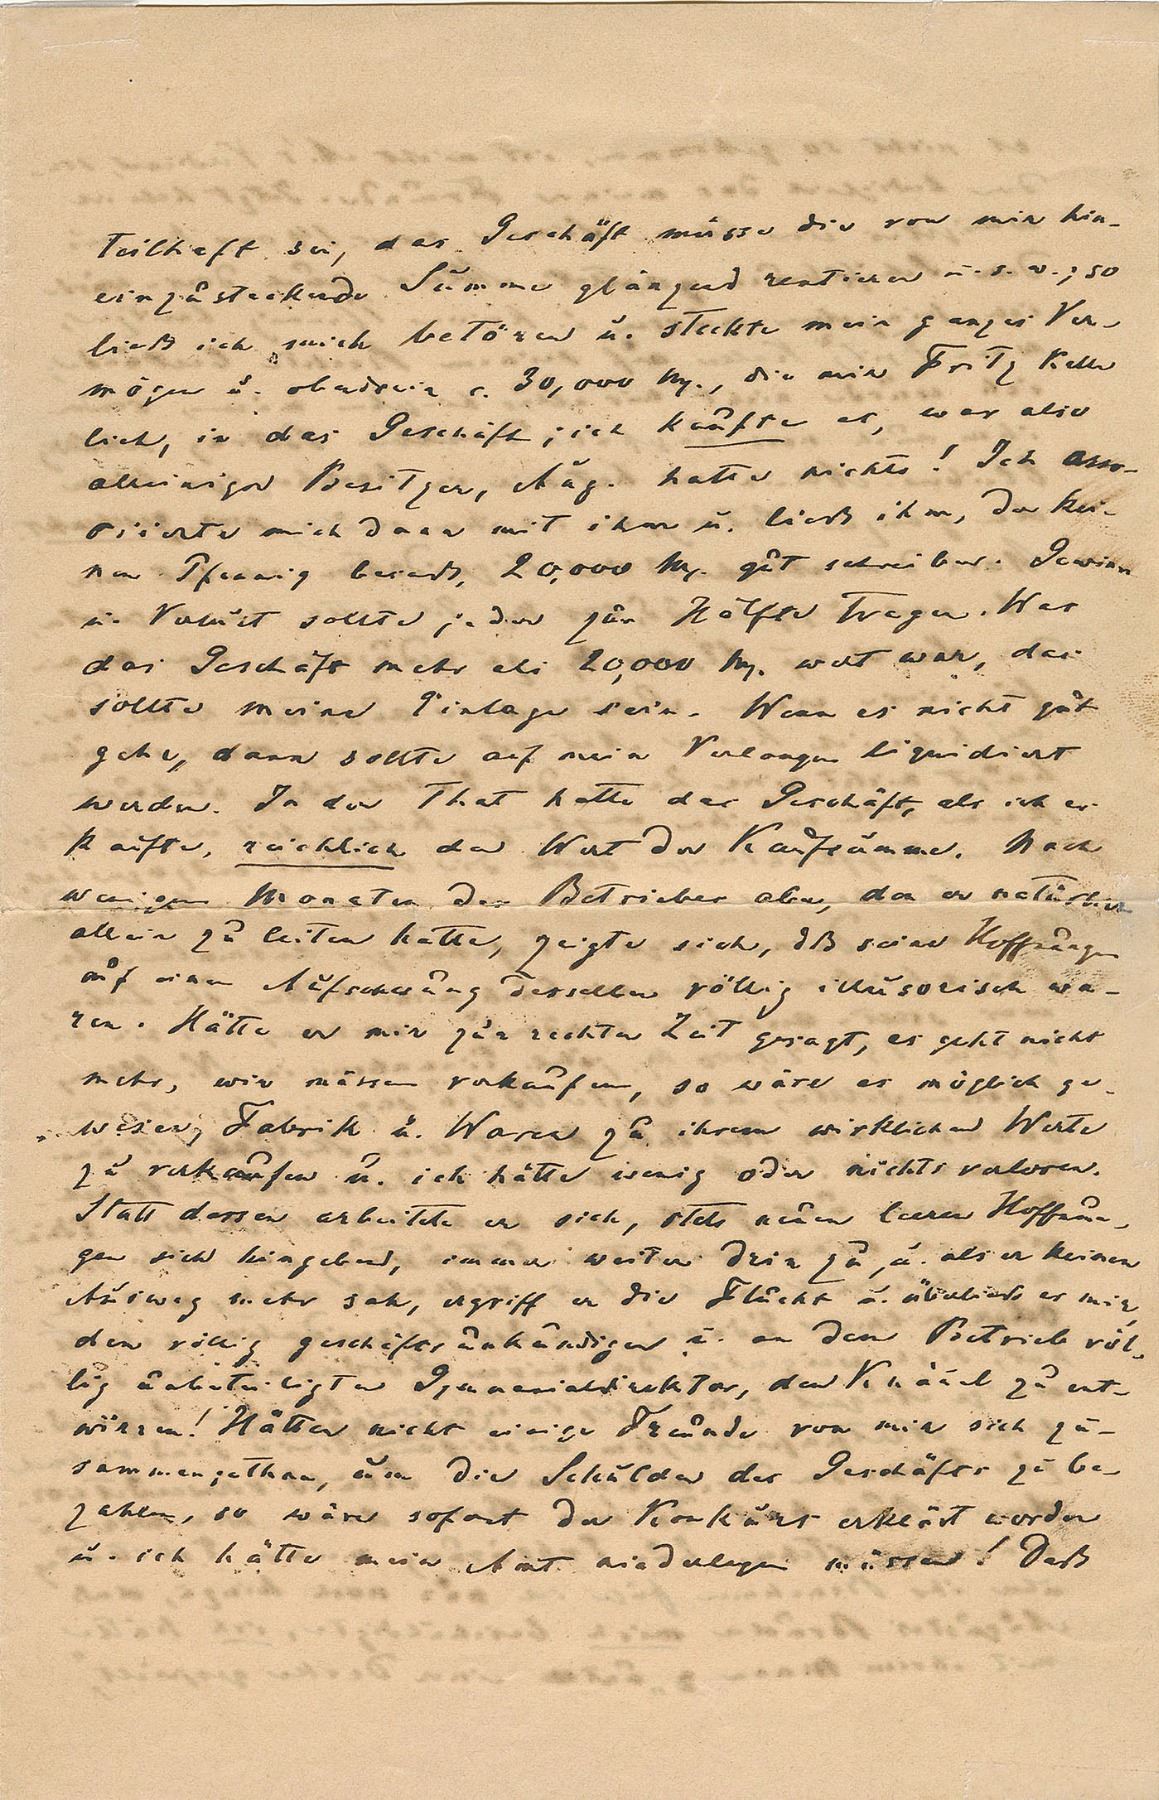 teilhaft sei, das Geschäft müsse die von mir hin-
einzusteckende Summe glänzend rentieren u. s. w.; so
ließ ich mich betören u. steckte mein ganzes Ver-
mögen u. obendrein c. 30,000 M., die mir Fritz Keller
lieh, in das Geschäft; ich kaufte es, war also
alleiniger Besitzer, Aug. hatte nichts! Ich asso-
ciierte mich dann mit ihm u. ließ ihm, der kei-
nen Pfennig besaß, 20,000 M. gut schreiben. Gewinn
u. Verlust sollte jeder zur Hälfte tragen. Was
das Geschäft mehr als 20,000 M. wert war, das
sollte meine Einlage sein. Wenn es nicht gut
gehe, dann sollte auf mein Verlangen liquidiert
werden. In der That hatte das Geschäft, als ich es
kaufte, reichlich den Wert der Kaufsumme. Nach
wenigen Monaten des Betriebes aber, den er natürlich
allein zu leiten hatte, zeigte sich, dß seine Hoffnungen
auf einen Aufschwung desselben völlig illusorisch wa-
ren. Hätte er mir zur rechten Zeit gesagt, es geht nicht
mehr, wir müssen verkaufen, so wäre es möglich ge-
wesen, Fabrik u. Waren zu ihrem wirklichen Werte
zu verkaufen u. ich hätte wenig oder nichts verloren.
Statt dessen arbeitete er sich, stets neuen leeren Hoffnun-
gen sich hingebend, immer weiter drin zu, u. als er keinen
Ausweg mehr sah, ergriff er die Flucht u. überließ es mir,
dem völlig geschäftsunkundigen u. an dem Betrieb völ-
lig unbeteiligten Gymnasialdirektor, den Knäuel zu ent-
wirren! Hätten nicht einige Freunde von mir sich zu-
sammengethan, um die Schulden des Geschäftes zu be-
zahlen, so wäre sofort der Konkurs erklärt worden
u. ich hätte mein Amt niederlegen müssen! Daß